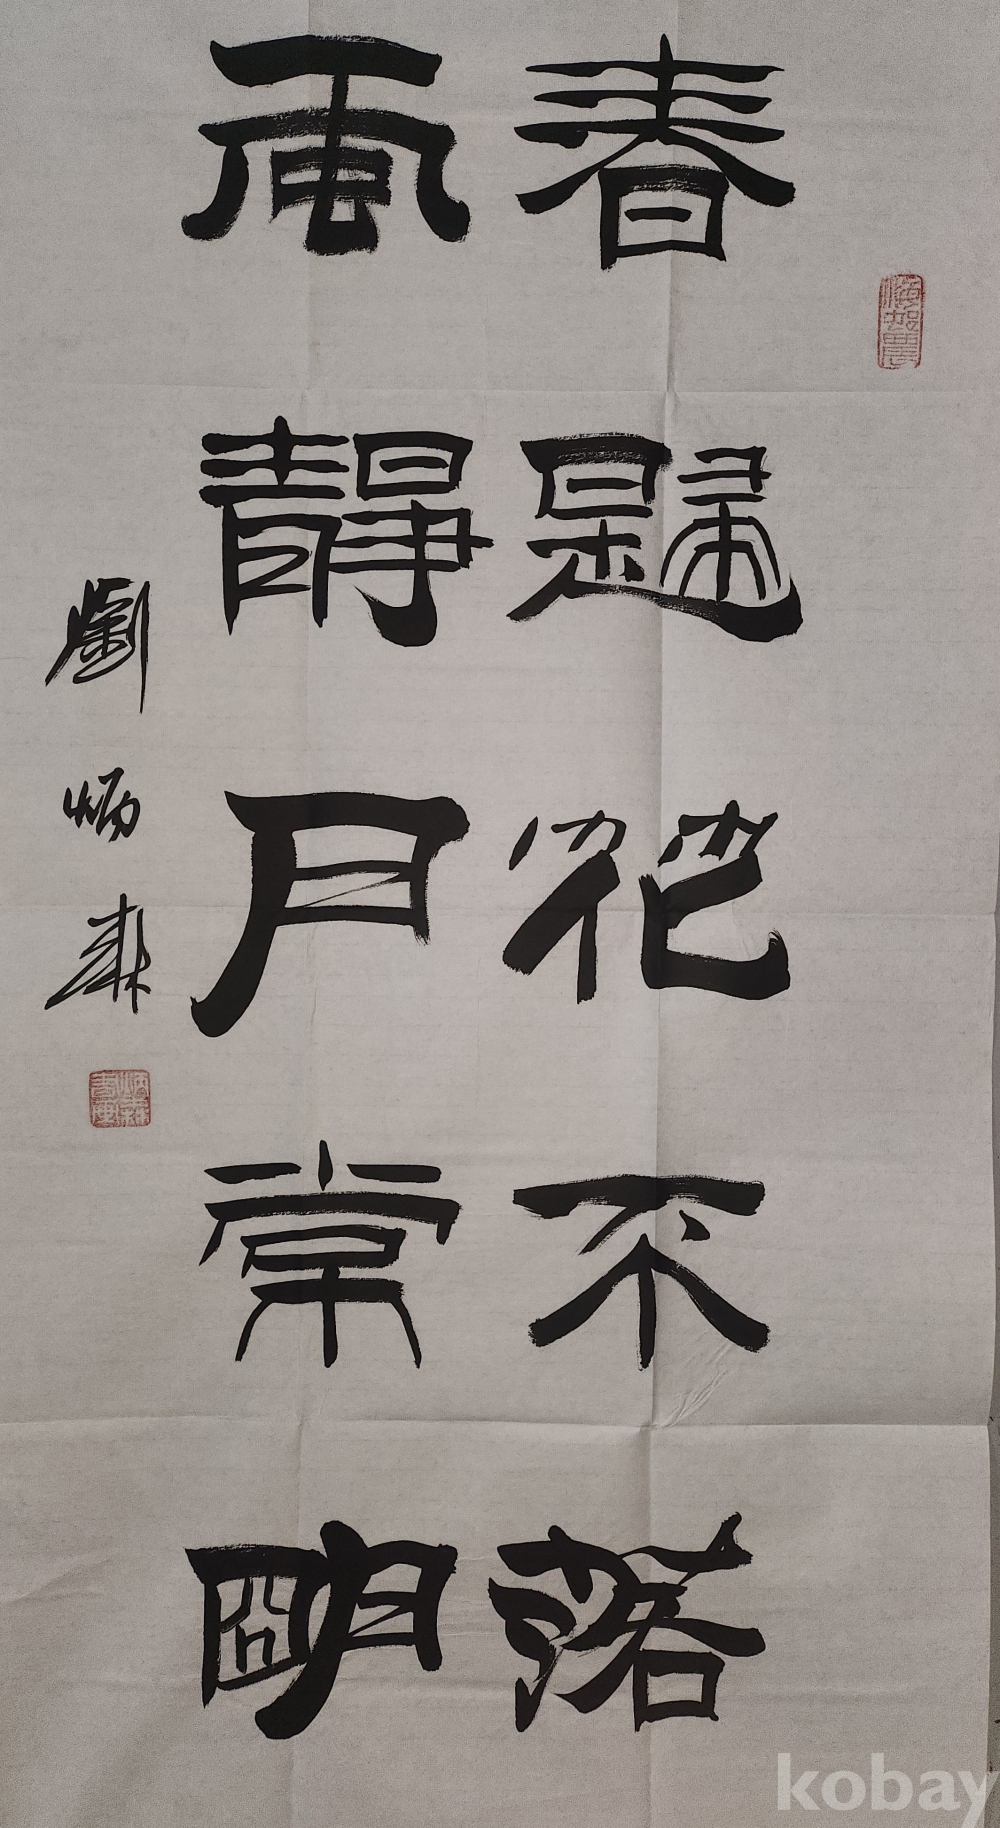 春歸花不落
風靜月常明
劉炳森
kobay